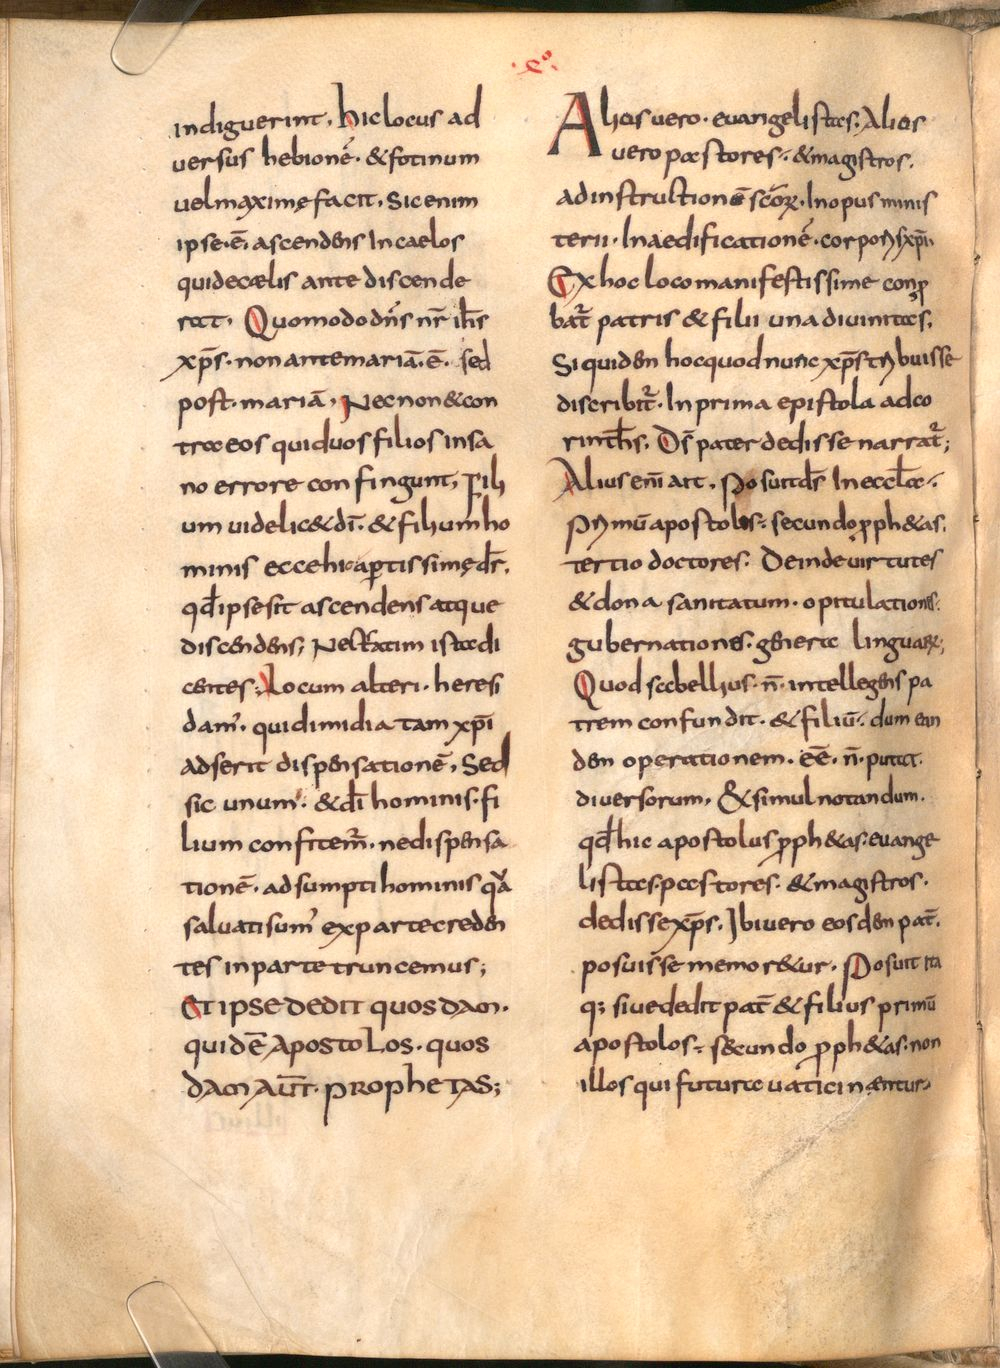 indiguerint, hic locus ad
uersus hebionē. & fotinum
uel maximę facit, Sic enim
ipse. ē. ascendens In caelos
qui de cęlis ante discende
rat, Quomodo dn̄s nr̄ ih̄s
xp̄s. non ante mariā. ē. sed
post. mariā, Nec non & con
tra eos qui duos filios insa
no errore confingunt, Fili
um uidelic& dī. & filium ho
minis ecce hic apertissimę dr̄,
qd̄ ipse sit ascendens atque
discendens; Nec statim ista di
centes; Locum alteri. heresi
dam̄. qui dimidiatam xp̄i
adserit dispensationē, Sed
sic unum. & dī hominis. fi
lium confitem̄r. ne dispensa
tionē. adsumpti hominis qua
saluati sum̄ ex parte creden
tes in parte truncemus;
Et ipse dedit quosdam.
quidē Apostolos. quos
dam aūt. prophetas;
.x̊.
Alios uero. euangelistas. Alios
uero pastores. & magistros.
ad instructionē scōꝝ. In opus minis
terii. In aedificationē. corporis xp̄i.
Ex hoc loco manifestissime conp
bat̄r patris & filii una diuinitas,
Si quidem hoc quod nunc xp̄s tribuisse
discribit̄r. In prima epistola ad co
rinth̄s, Ds̄ pater dedisse narrat̄r;
Alius enī ait, Posuit ds̄ In eccl̄a.
Primū apostolos. secundo ꝓph&as.
tertio doctores. Deinde uirtutes
& dona sanitatum. opitulationes.
gubernationes. genera linguaꝝ;
Quod sabellius. n̄. intellegens pa
trem confundit. & filiū. dum ean
dem operationem. eē. n̄. putat.
diuersorum, & simul notandum.
qd̄ hic apostolus ꝓph&as. euange
listas. pastores. & magistros.
dedisse xp̄s. Ibi uero eosdem pat̄.
posuisse memor&ur. Posuit ita
q; siue dedit pat̄ & filius primū
apostolos. secundo ꝓph&as. non
illos qui futura uaticinantur